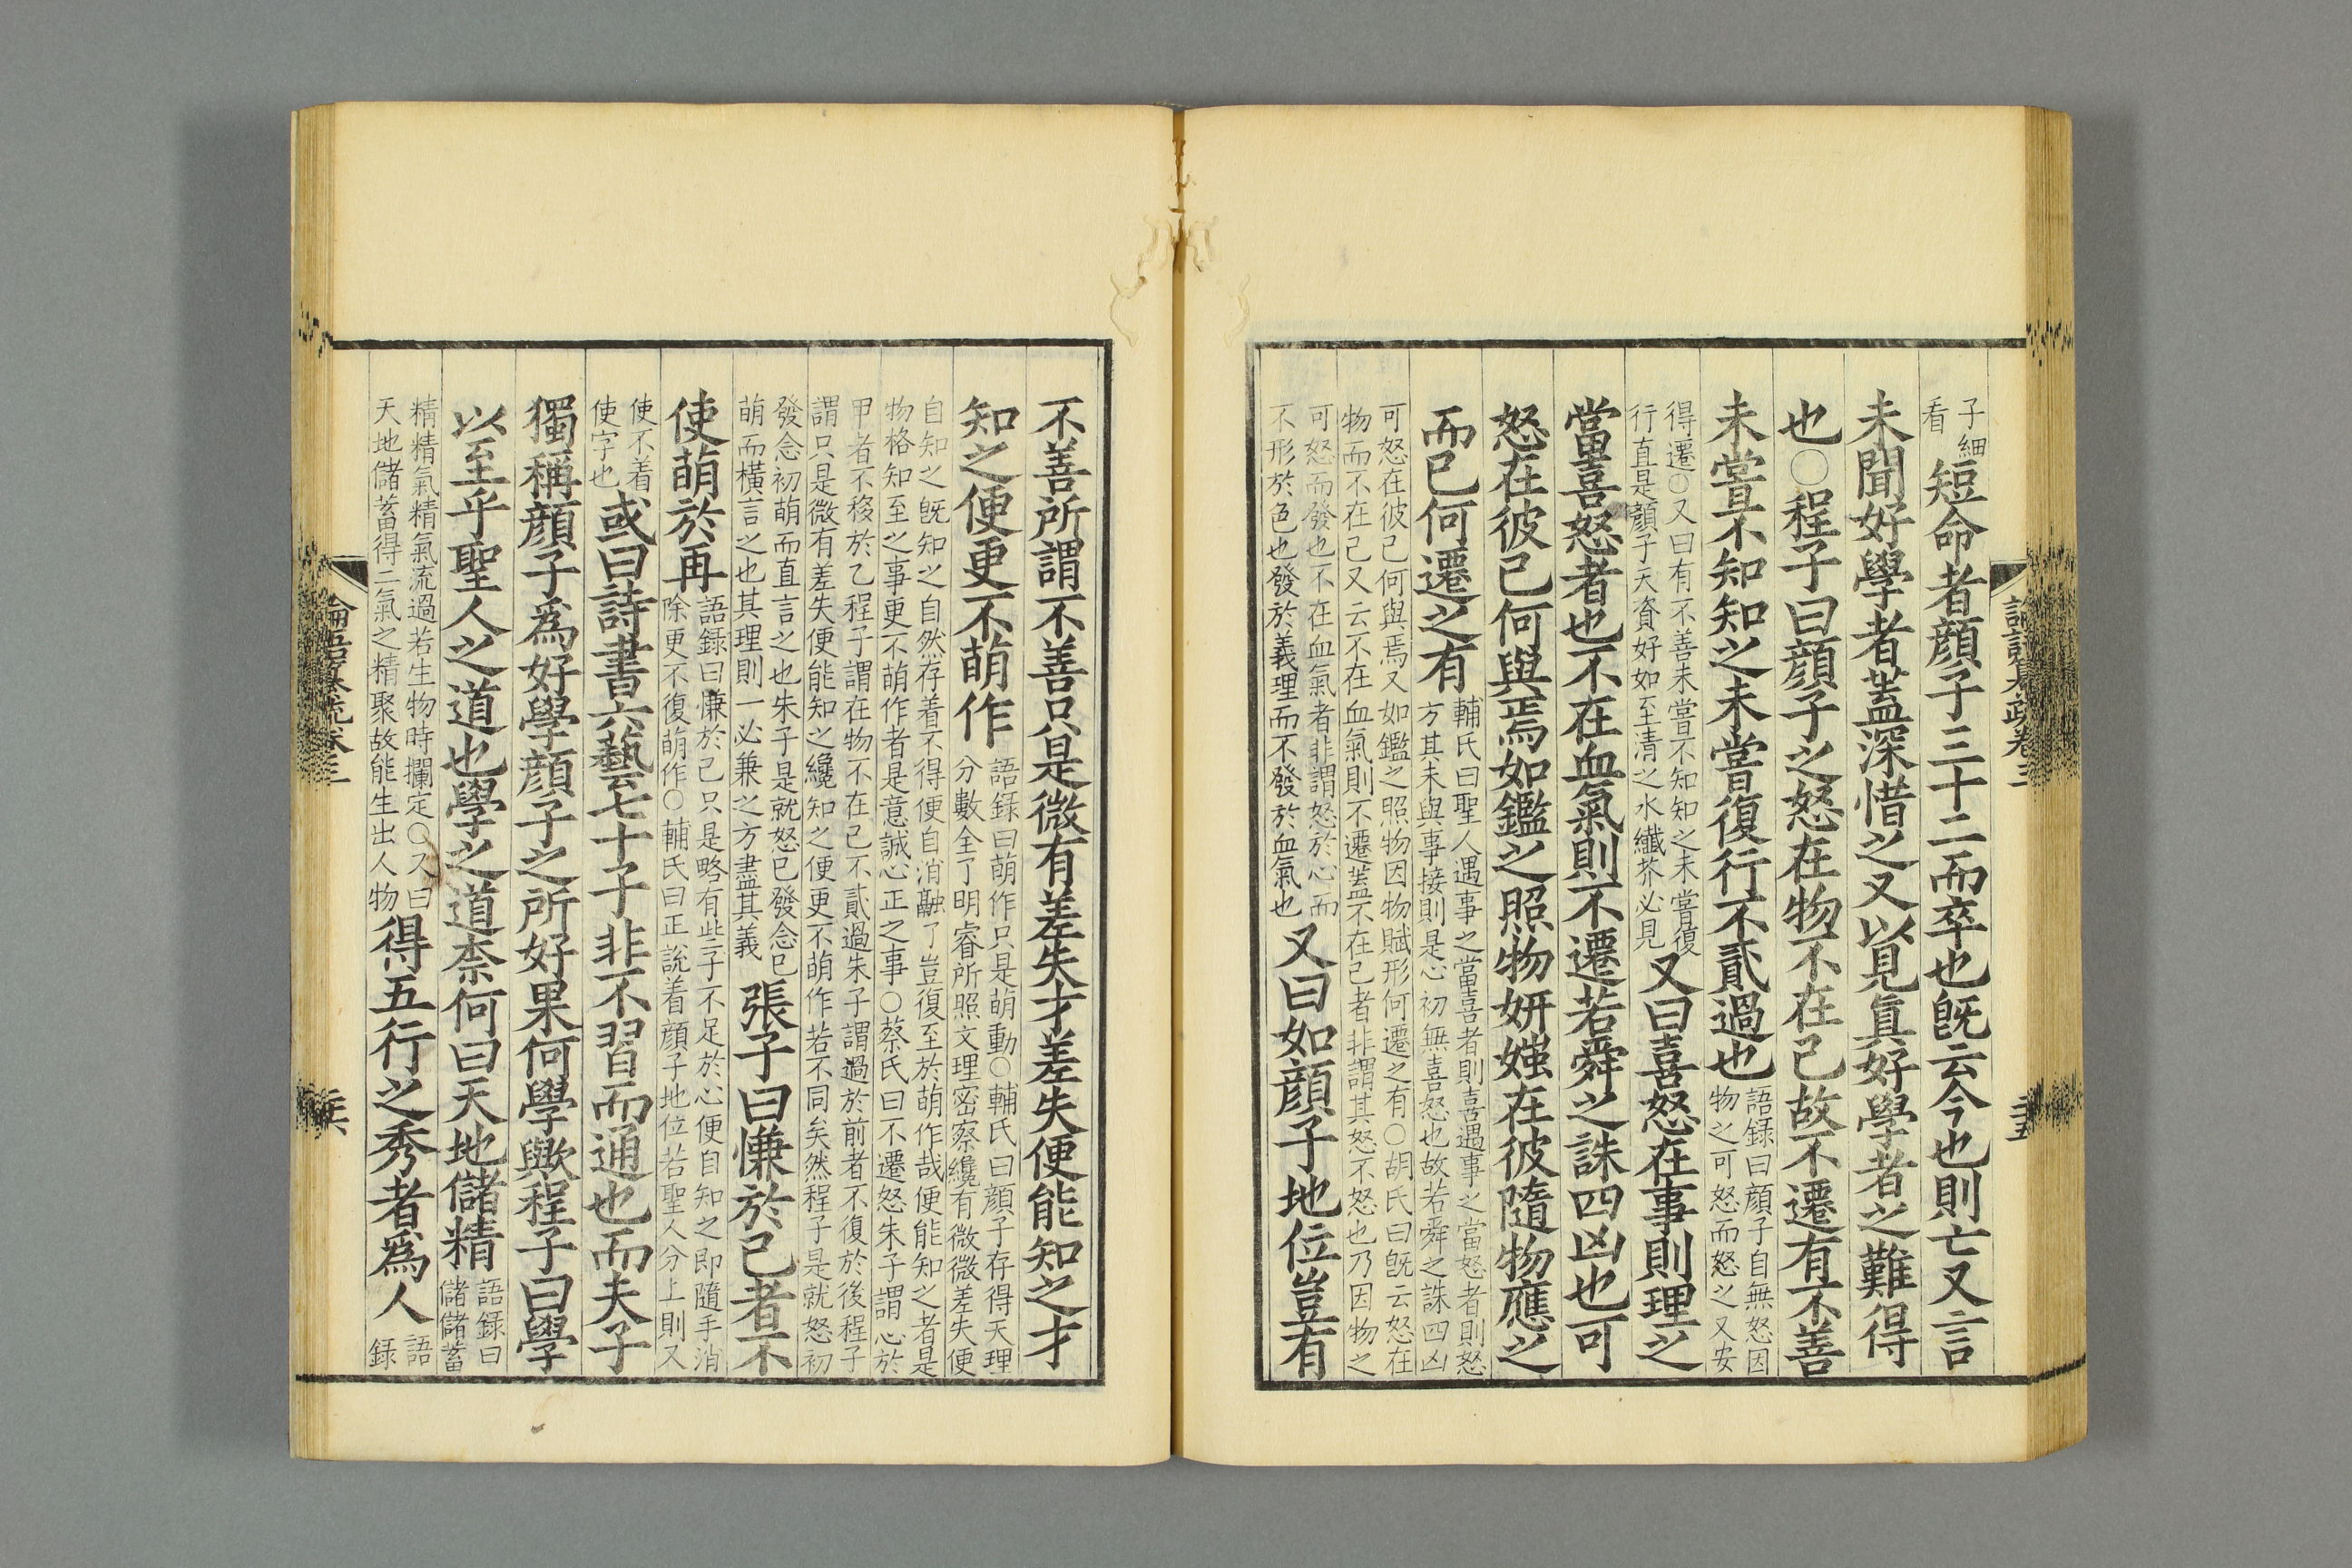 子細
看
短命者顔子三十二而卒也既云今也則亡又言
未聞好學者蓋深惜之又以見眞好學者之難得
也〇程子曰顔子之怒在物不在己故不遷有不善
未嘗不知知之未嘗復行不貳過也
語録曰顔子自無怒因
物之可怒而怒之又安
得遷〇又曰有不善未嘗不知知之未嘗復
行直是顔子天資好如至清之水纖芥必見
又曰喜怒在事則理之
當喜怒者也不在血氣則不遷若舜之誅四凶也可
怒在彼己何與焉如鑑之照物妍媸在彼隨物應之
而已何遷之有
輔氏曰聖人遇事之當喜者則喜遇事之當怒者則怒
方其未與事接則是心初無喜怒也故若舜之誅四凶
可怒在彼己何與焉又如鑑之照物因物賦形何遷之有〇胡氏曰既云怒在
物而不在己又云不在血氣則不遷蓋不在己者非謂其怒不怒也乃因物之
可怒而發也不在血氣者非謂怒於心而
不形於色也發於義理而不發於血氣也
又曰如顔子地位豈有
不善所謂不善只是微有差失才差失便能知之才
知之便更不萌作
語録曰萌作只是萌動〇輔氏曰顔子存得天理
分數全了明睿所照文理密察纔有微微差失便
自知之既知之自然存着不得便自消融了豈復至於萌作哉便能知之者是
物格知至之事更不萌作者是意誠心正之事〇蔡氏曰不遷怒朱子謂心於
甲者不移於乙程子謂在物不在己不貳過朱子謂過於前者不復於後程子
謂只是微有差失便能知之纔知之便更不萌作若不同矣然程子是就怒初
發念初萌而直言之也朱子是就怒已發念已
萌而橫言之也其理則一必兼之方盡其義
張子曰慊於己者不
使萌於再
語録曰慊於己只是略有些子不足於心便自知之即隨手消
除更不復萌作〇輔氏曰正説着顔子地位若聖人分上則又
使不着
使字也
或曰詩書六藝七十子非不習而通也而夫子
獨稱顔子爲好學顔子之所好果何學歟程子曰學
以至乎聖人之道也學之道柰何曰天地儲精
語録曰
儲儲蓄
精精氣精氣流過若生物時攔定〇又曰
天地儲蓄得二氣之精聚故能生出人物
得五行之秀者爲人
語
録